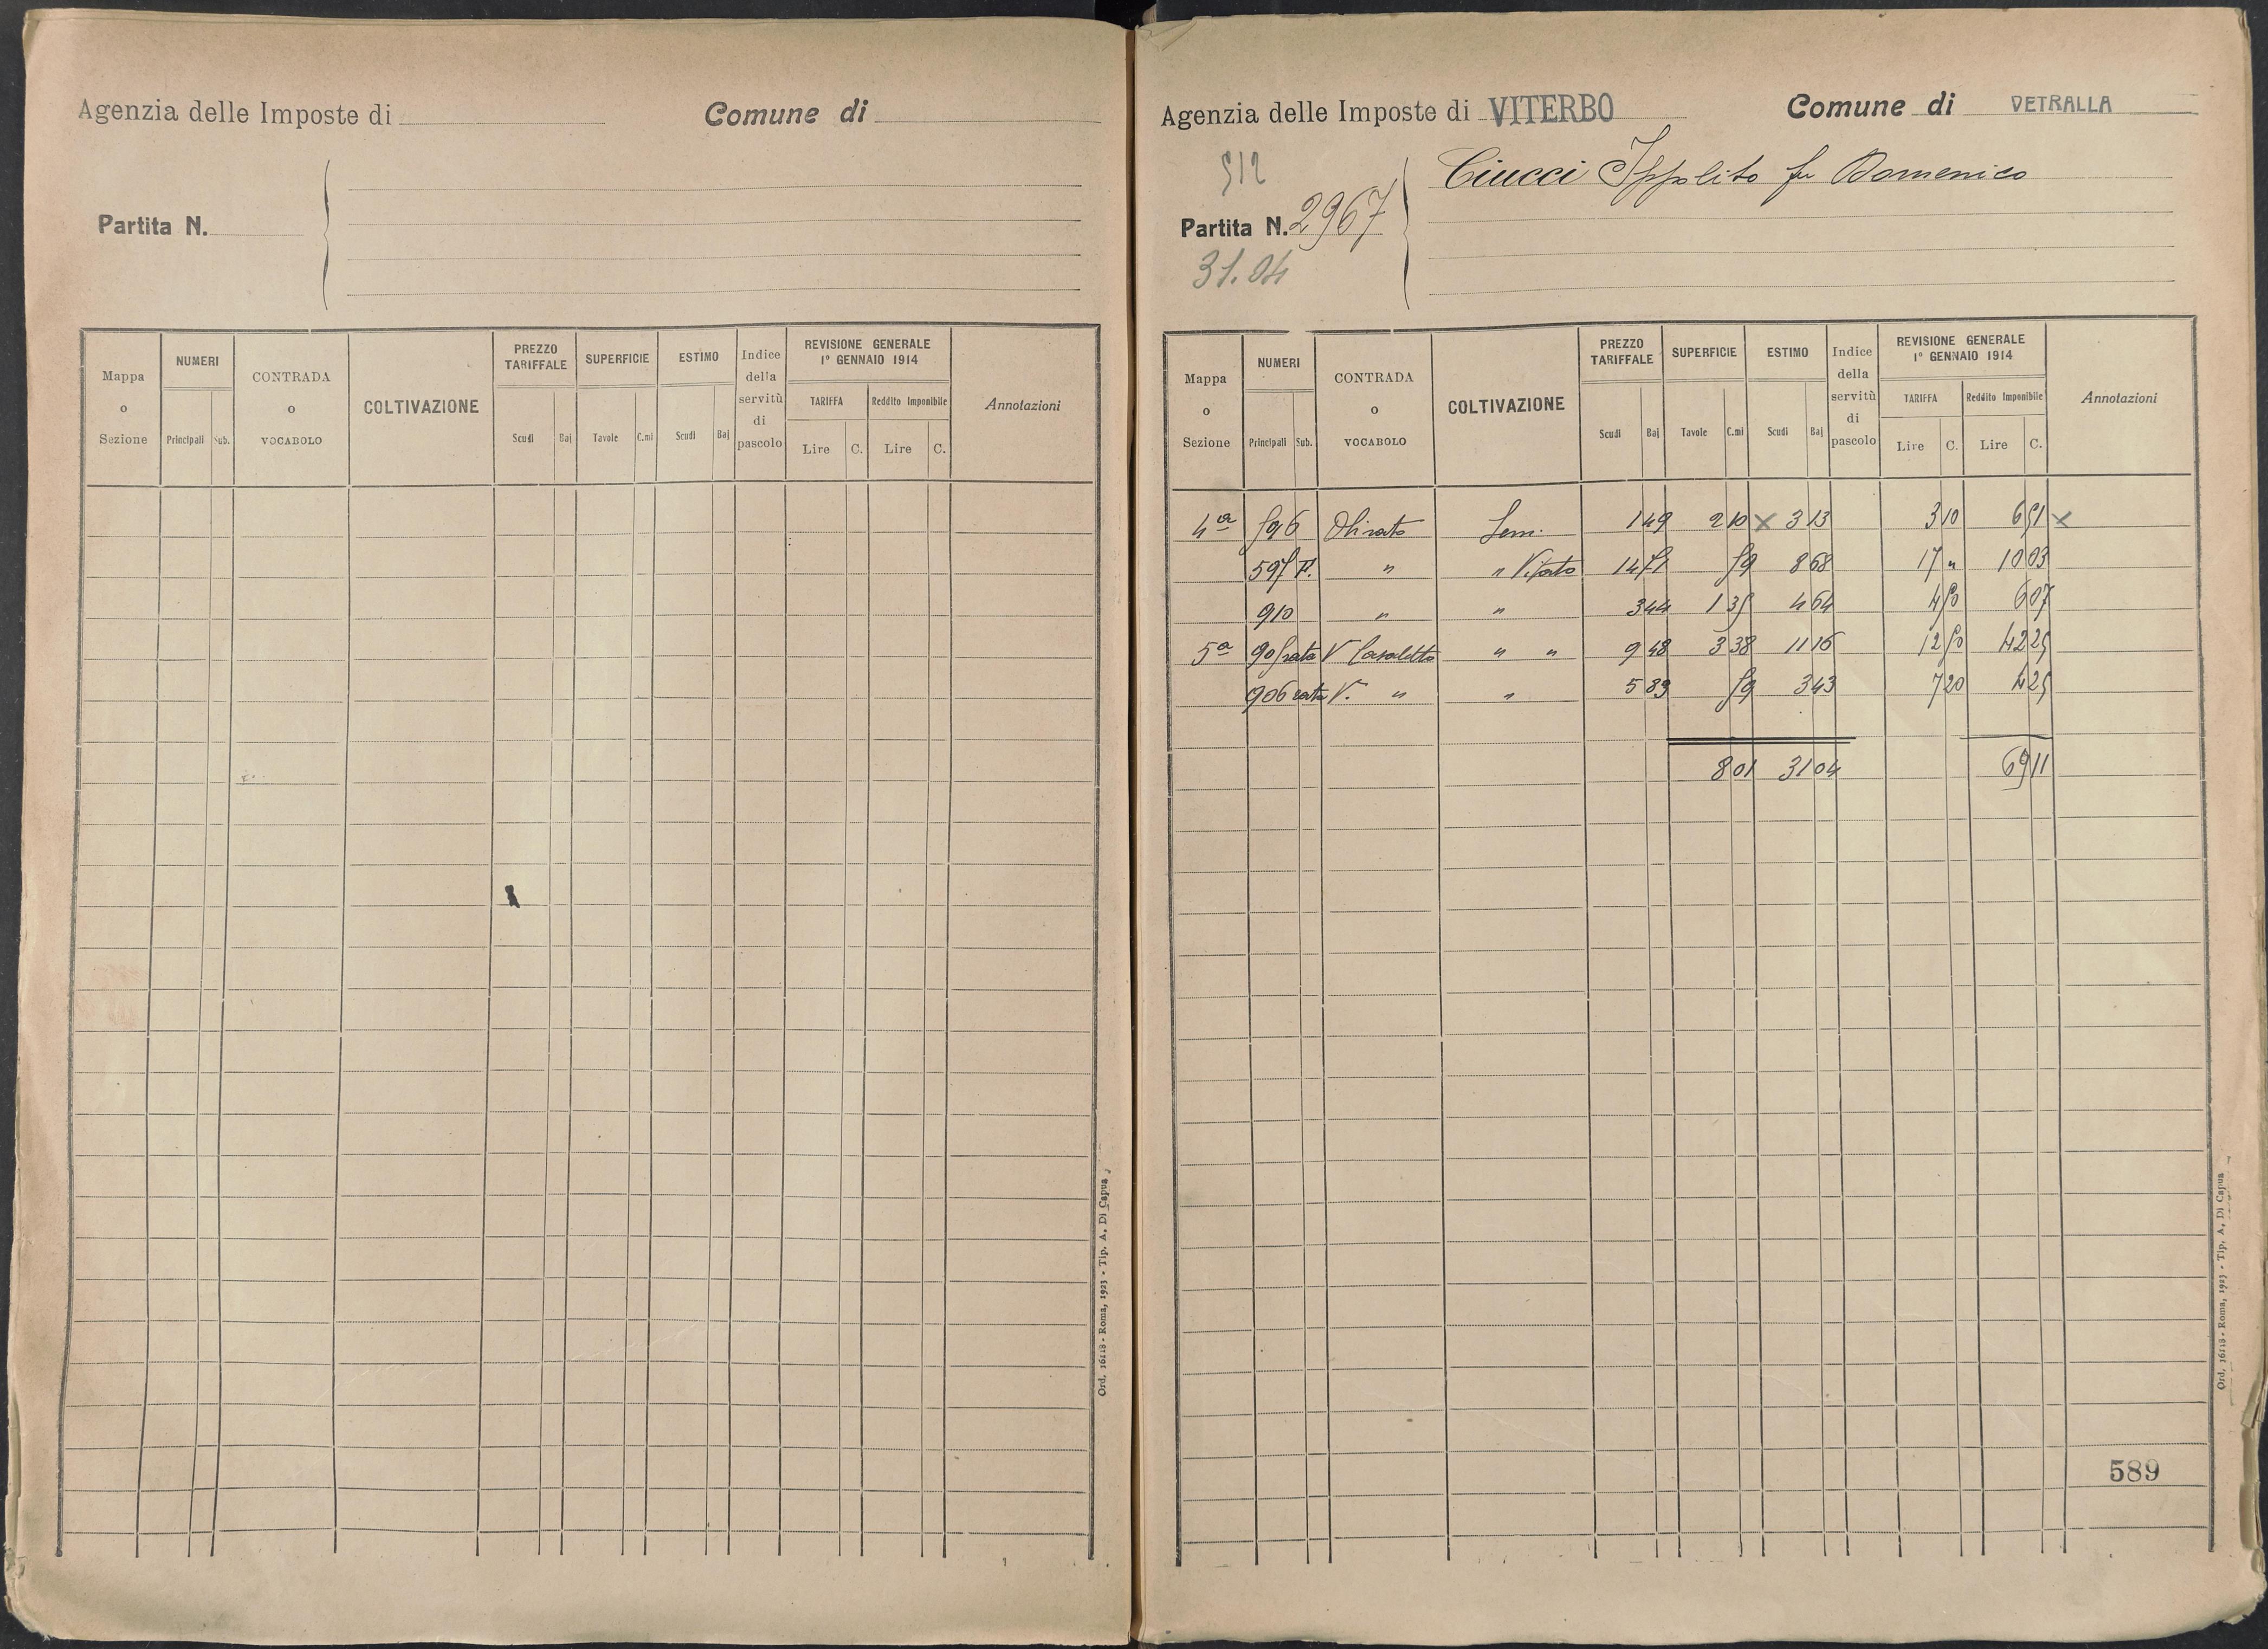 Agenzia delle Imposte di
Comune di
Partita N.
Mappa o Sezione
NUMERI
Principali
Sub.
CONTRADA o VOCABOLO
COLTIVAZIONE
PREZZO TARIFFALE
Scudi
Baj
SUPERFICIE
Tavole
C.mi
ESTIMO
Scudi
Baj
Indice della servitù di pascolo
REVISIONE GENERALE
1° GENNAIO 1914
TARIFFA
Reddito Imponibile
Lire
C.
Lire
C.
Annotazioni
Ord. 16118 - Roma, 1923 - Tip. A. Di Capua
Agenzia delle Imposte di VITERBO
Comune di VETRALLA
512
Partita N. 2967
31.04
Ciucci Ippolito fu Domenico
Mappa o Sezione
NUMERI
Principali
Sub.
CONTRADA o VOCABOLO
COLTIVAZIONE
PREZZO TARIFFALE
Scudi
Baj
SUPERFICIE
Tavole
C.mi
ESTIMO
Scudi
Baj
Indice della servitù di pascolo
REVISIONE GENERALE
1° GENNAIO 1914
TARIFFA
Reddito Imponibile
Lire
C.
Lire
C.
Annotazioni
4ª 596 Olivato Sem. 1 49 2 10 x 3 13 3 10 6 51 x
597 " " Vitato 14 71 59 8 68 17 " 10 03
910 " " 3 44 1 35 4 64 4 50 6 07
5ª 905 rata V Casaletto " " 9 48 3 38 11 16 12 50 42 25
906 rata V. " " 5 83 59 3 43 7 20 4 25
8 01 31 04 69 11
589
Ord. 16118 - Roma, 1923 - Tip. A. Di Capua